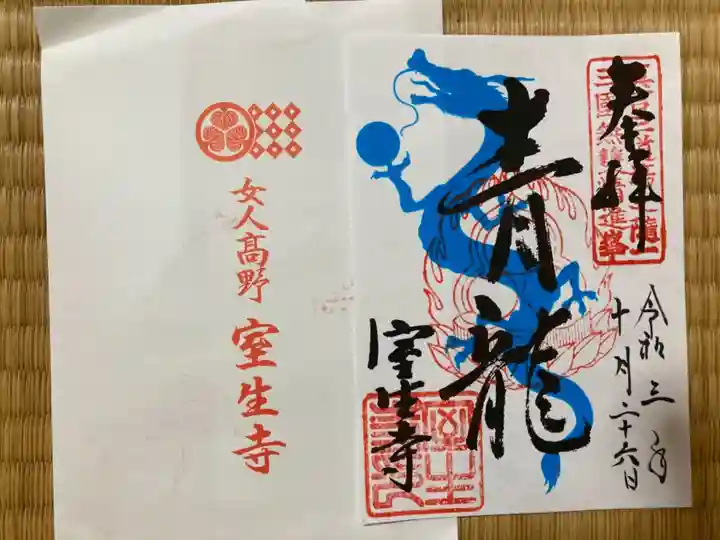 女人高野
室生寺
奉拝
青龍
室生寺
令和三年
十月二十六日